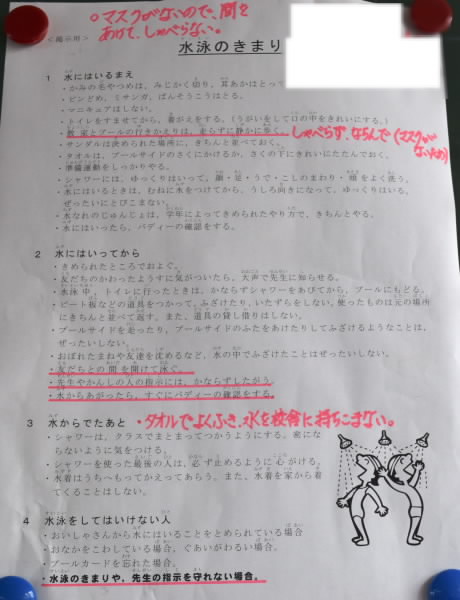 ○マスクがないので、間を
あけて、しゃべらない。
＜掲示用＞
水泳のきまり
1 水にはいるまえ
・かみの毛やつめは、みじかく切り、耳あかはとって
・ピンどめ、ミサンガ、ばんそうこうはとる。
・マニキュアはしない。
・トイレをすませてから、着がえをする。(うがいをして口の中をきれいにする。)
・教室とプールの行きかえりは、走らずに静かに歩く。しゃべらず、ならんで(マスクが
ないため)
・サンダルは決められた場所に、きちんと並べておく。
・タオルは、プールサイドのさくにかけるか、さくの下にきれいにたたんでおく。
・準備運動をしっかりやる。
・シャワーには、ゆっくりはいって、頭・足・うで・こしのまわり・顔をよく洗う。
・水にはいるときは、むねに水をつけてから、うしろ向きになって、ゆっくりはいる。
ぜったいにとびこまない。
・水なれのじゅんじょは、学年によってきめられたやり方で、きちんとやる。
・水にはいったら、バディーの確認をする。
2 水にはいってから
・きめられたところでおよぐ。
・友だちのかわったようすに気がついたら、大声で先生に知らせる。
・水泳中、トイレに行ったときは、かならずシャワーをあびてから、プールにもどる。
・ビート板などの道具をつかって、ふざけたり、いたずらをしない。使ったものは元の場所
にきちんと並べて返す。また、道具の貸し借りはしない。
・プールサイドを走ったり、プールサイドのふたをあけたりしてふざけるようなことは、
ぜったいしない。
・おぼれたまねや友達を沈めるなど、水の中でふざけたことはぜったいしない。
・友だちとの間を開けて泳ぐ。
・先生やかんしの人の指示には、かならずしたがう。
・水からあがったら、すぐにバディーの確認をする。
3 水からでたあと ・タオルでよくふき、水を校舎に持ちこまない。
・シャワーは、クラスでまとまってつかうようにする。密にな
らないように気をつける。
・シャワーを使った最後の人は、必ず止めるように心がける。
・水着はうちへもってかえってあらう。また、水着を家から着
てくることはしない。
4 水泳をしてはいけない人
・おいしゃさんから水にはいることをとめられている場合
・おなかをこわしている場合、ぐあいがわるい場合。
・プールカードを忘れた場合。
・水泳のきまりや、先生の指示を守れない場合。